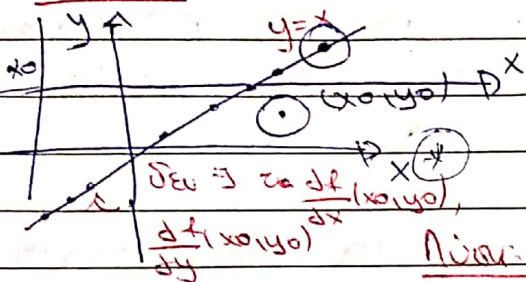 y y=x
x0
(x0,y0) x
x -x
δεν ∃ τα df/dx (x0,y0),
df/dy (x0,y0)
Λύση: